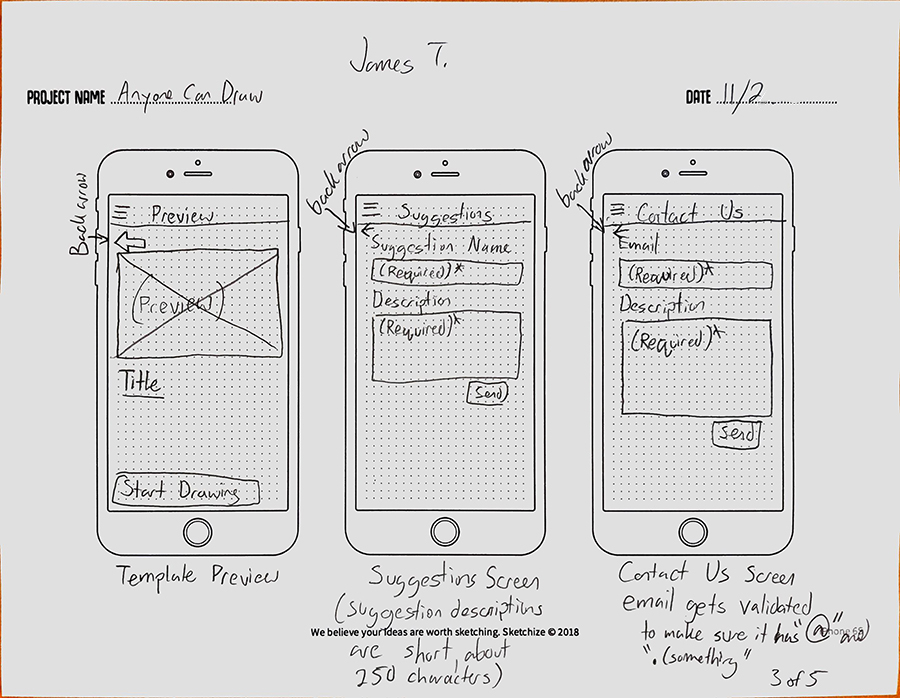 James T.
PROJECT NAME Anyone Can Draw
DATE 11/2
Back arrow
Preview
(Preview)
Title
Start Drawing
Template Preview
back arrow
Suggestions
Suggestion Name
(Required)*
Description
(Required)*
Send
Suggestions Screen
(suggestion descriptions
We believe your ideas are worth sketching. Sketchize © 2018
are short, about
250 characters)
back arrow
Contact Us
Email
(Required)*
Description
(Required)*
Send
Contact Us Screen
email gets validated
to make sure it has "@" and
".(something"
3 of 5